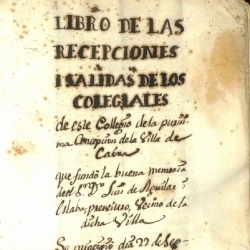 LIBRO DE LAS
RECEPCIONES
I SALIDAS DE LOS
COLEGIALES
de este Collegio de la puriſsi
ma Concepcion de la Villa de
Cabra
que fundò la buena memoria
del S. Dr Luis de Aguilar i
Eslaba, presvitero, Vecino de la
dicha Villa
dia 22 de